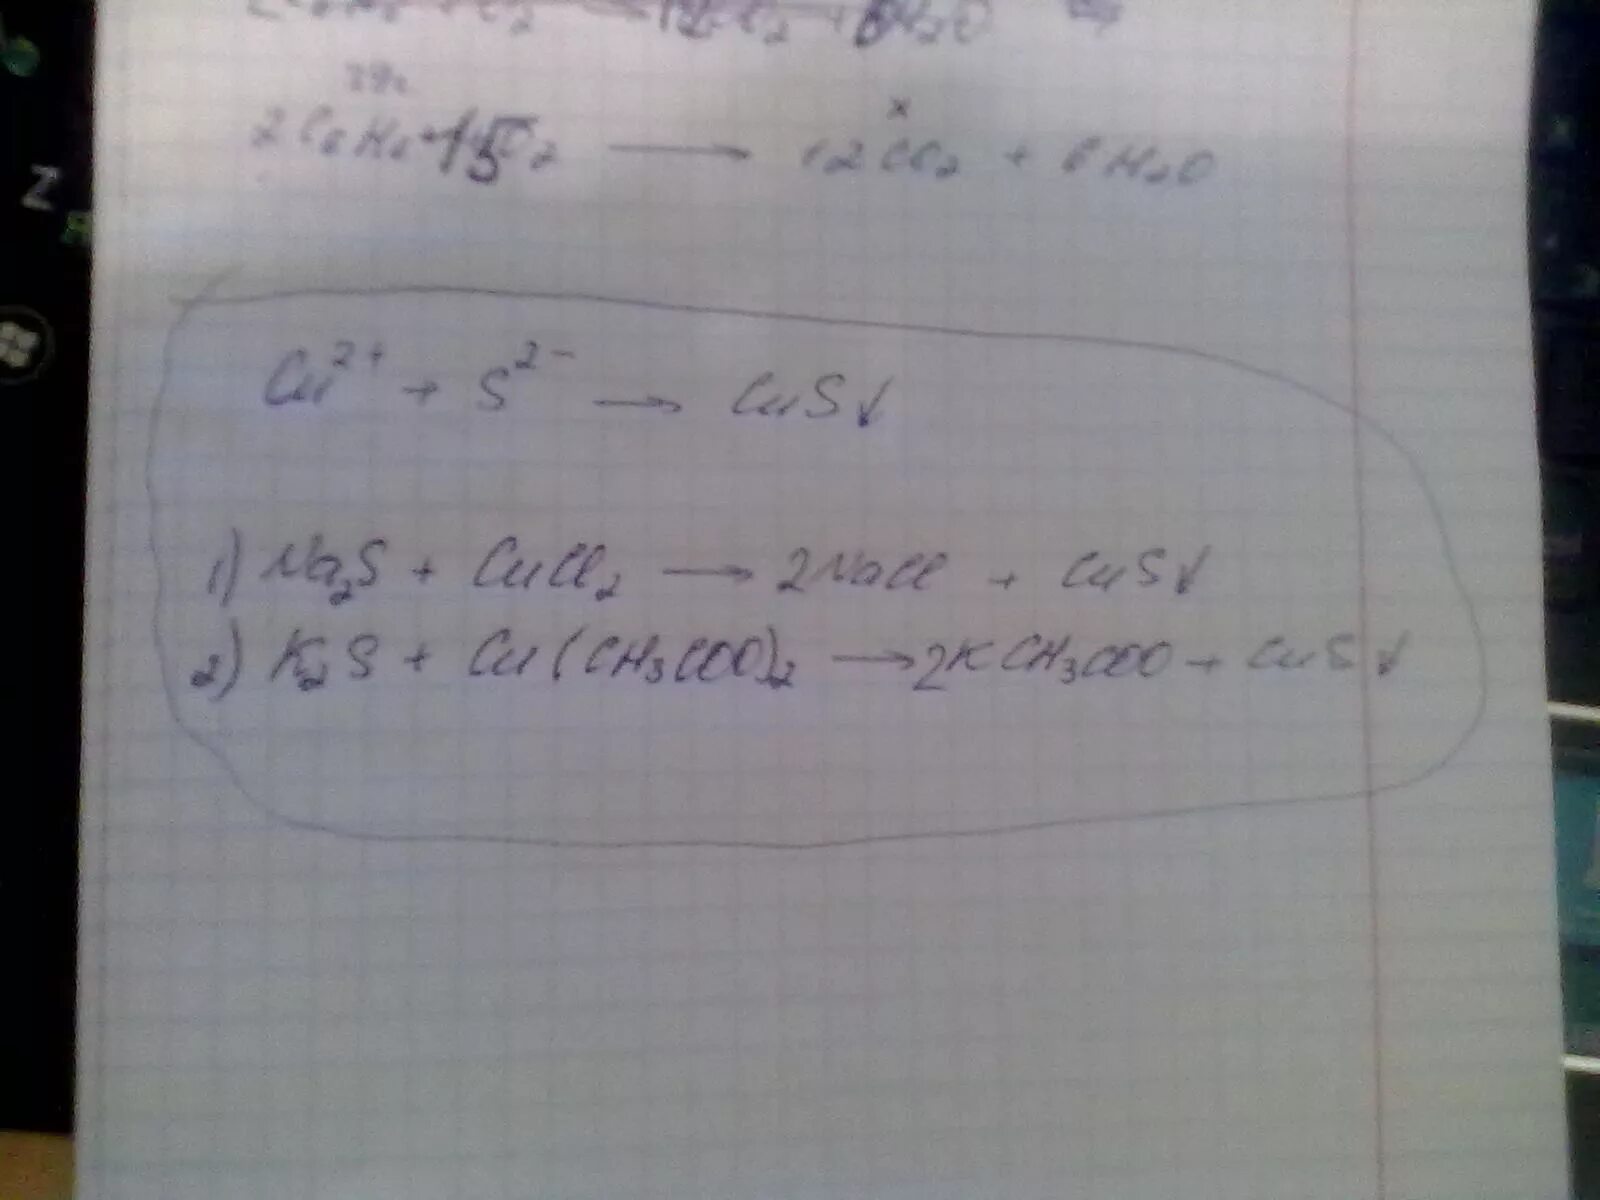 2C₆H₆ + 15O₂ → 12CO₂ + 6H₂O
x
Z
Cu²⁺ + S²⁻ → CuS↓
1) Na₂S + CuCl₂ → 2NaCl + CuS↓
2) K₂S + Cu(CH₃COO)₂ → 2KCH₃COO + CuS↓